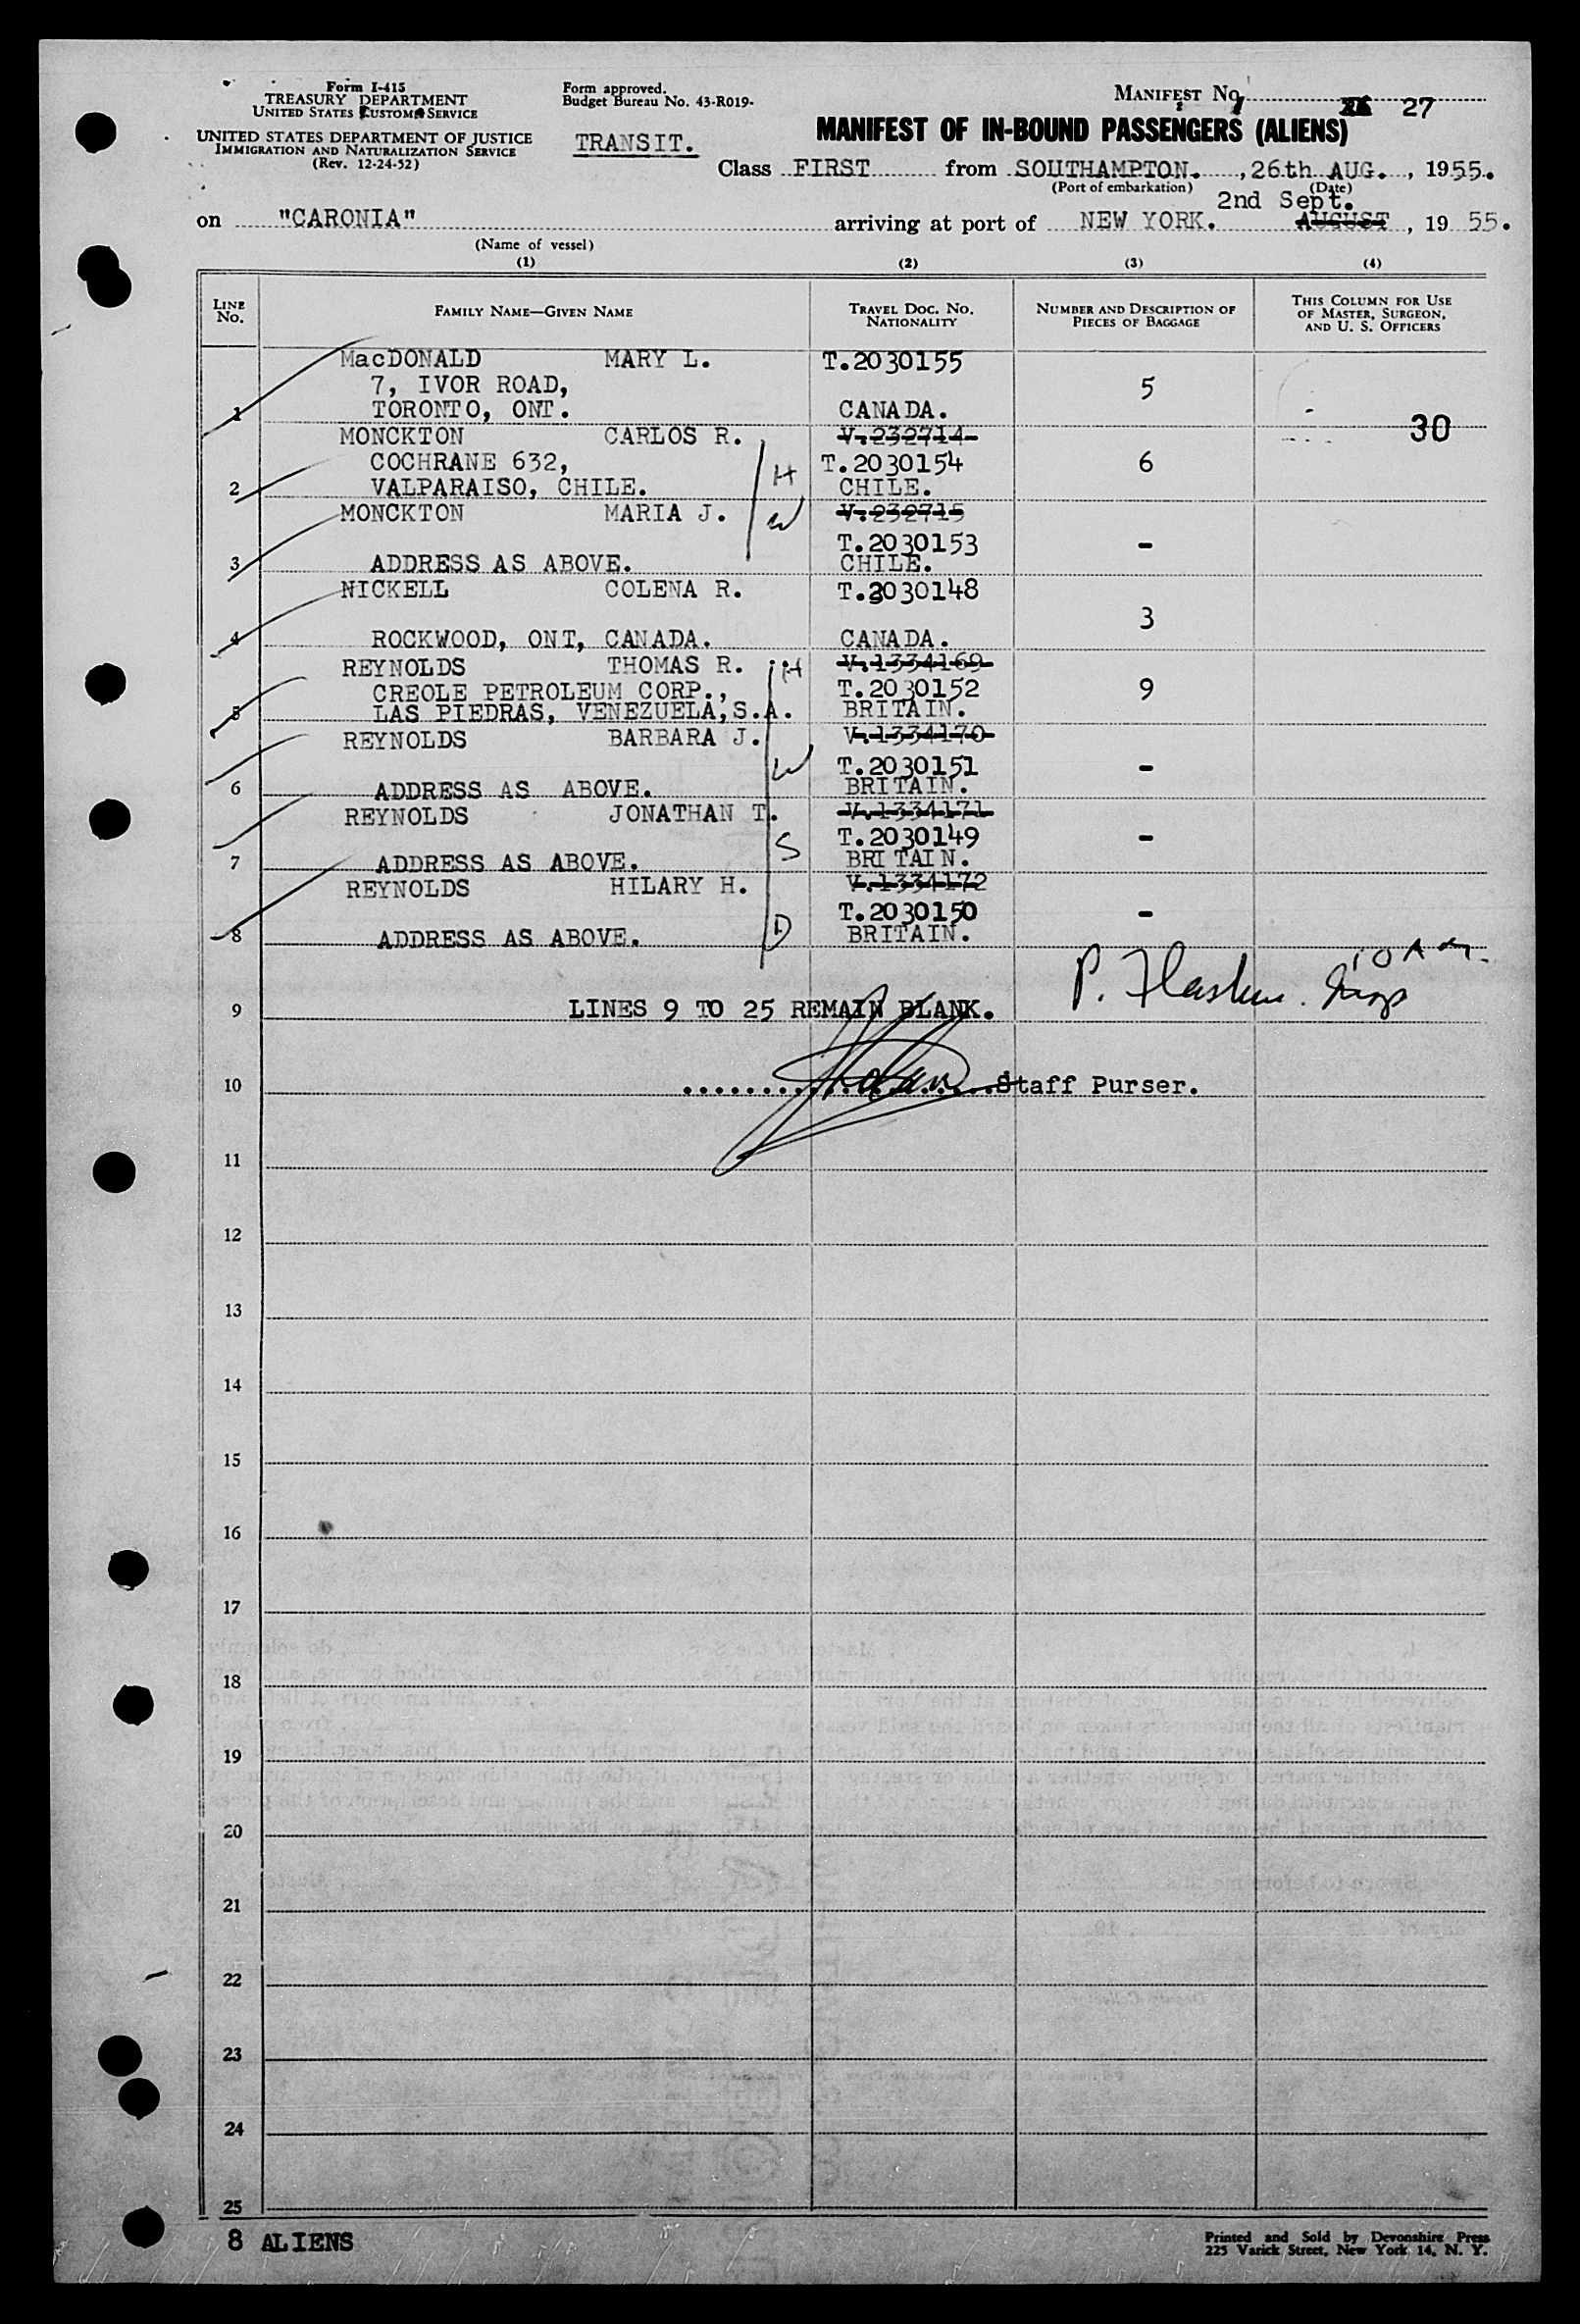 Form I-415
TREASURY DEPARTMENT
UNITED STATES CUSTOMS SERVICE
UNITED STATES DEPARTMENT OF JUSTICE
IMMIGRATION AND NATURALIZATION SERVICE
(Rev. 12-24-52)
Form approved.
Budget Bureau No. 43-R019-
TRANSIT.
MANIFEST No. 27
MANIFEST OF IN-BOUND PASSENGERS (ALIENS)
Class FIRST from SOUTHAMPTON. , 26th AUG. , 1955.
(Port of embarkation) (Date)
2nd Sept.
on "CARONIA" arriving at port of NEW YORK. AUGUST , 19 55.
(Name of vessel)
(1) (2) (3) (4)
LINE No. FAMILY NAME—GIVEN NAME TRAVEL DOC. NO. NATIONALITY NUMBER AND DESCRIPTION OF PIECES OF BAGGAGE THIS COLUMN FOR USE OF MASTER, SURGEON, AND U. S. OFFICERS
MacDONALD MARY L. T.2030155
7, IVOR ROAD, 5
1 TORONTO, ONT. CANADA.
30
MONCKTON CARLOS R. V.232714
COCHRANE 632, H T.2030154 6
2 VALPARAISO, CHILE. CHILE.
MONCKTON MARIA J. W V.232715
T.2030153 -
3 ADDRESS AS ABOVE. CHILE.
NICKELL COLENA R. T.2030148
3
4 ROCKWOOD, ONT, CANADA. CANADA.
REYNOLDS THOMAS R. H V.1334169
CREOLE PETROLEUM CORP., T.2030152 9
5 LAS PIEDRAS, VENEZUELA, S.A. BRITAIN.
REYNOLDS BARBARA J. V.1334170
W T.2030151 -
6 ADDRESS AS ABOVE. BRITAIN.
REYNOLDS JONATHAN T. V.1334171
S T.2030149 -
7 ADDRESS AS ABOVE. BRITAIN.
REYNOLDS HILARY H. V.1334172
T.2030150 -
8 ADDRESS AS ABOVE. D BRITAIN.
P.
9 LINES 9 TO 25 REMAIN BLANK.
10 Staff Purser.
11
12
13
14
15
16
17
18
19
20
21
22
23
24
25
8 ALIENS
Printed and Sold by Devonshire Press
225 Varick Street, New York 14, N. Y.